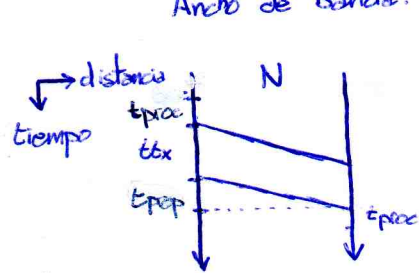 Ancho de banda.
distancia
N
tiempo
tproc
ttx
tpep
tproc